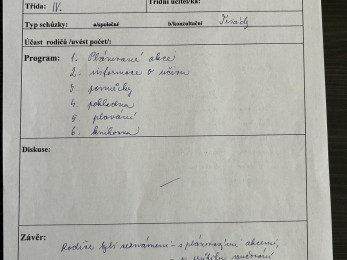 Třída: IV. Třídní učitel/ka:
Typ schůzky: a/společné b/konzultační Třídy
Účast rodičů /uvést počet/:
Program: 1. Plánované akce
2. informace o učivu
3 pomůcky
4. pokladna
5. plavání
6. knihovna
Diskuse:
—
Závěr:
Rodiče byli seznámeni s plánovanými akcemi,